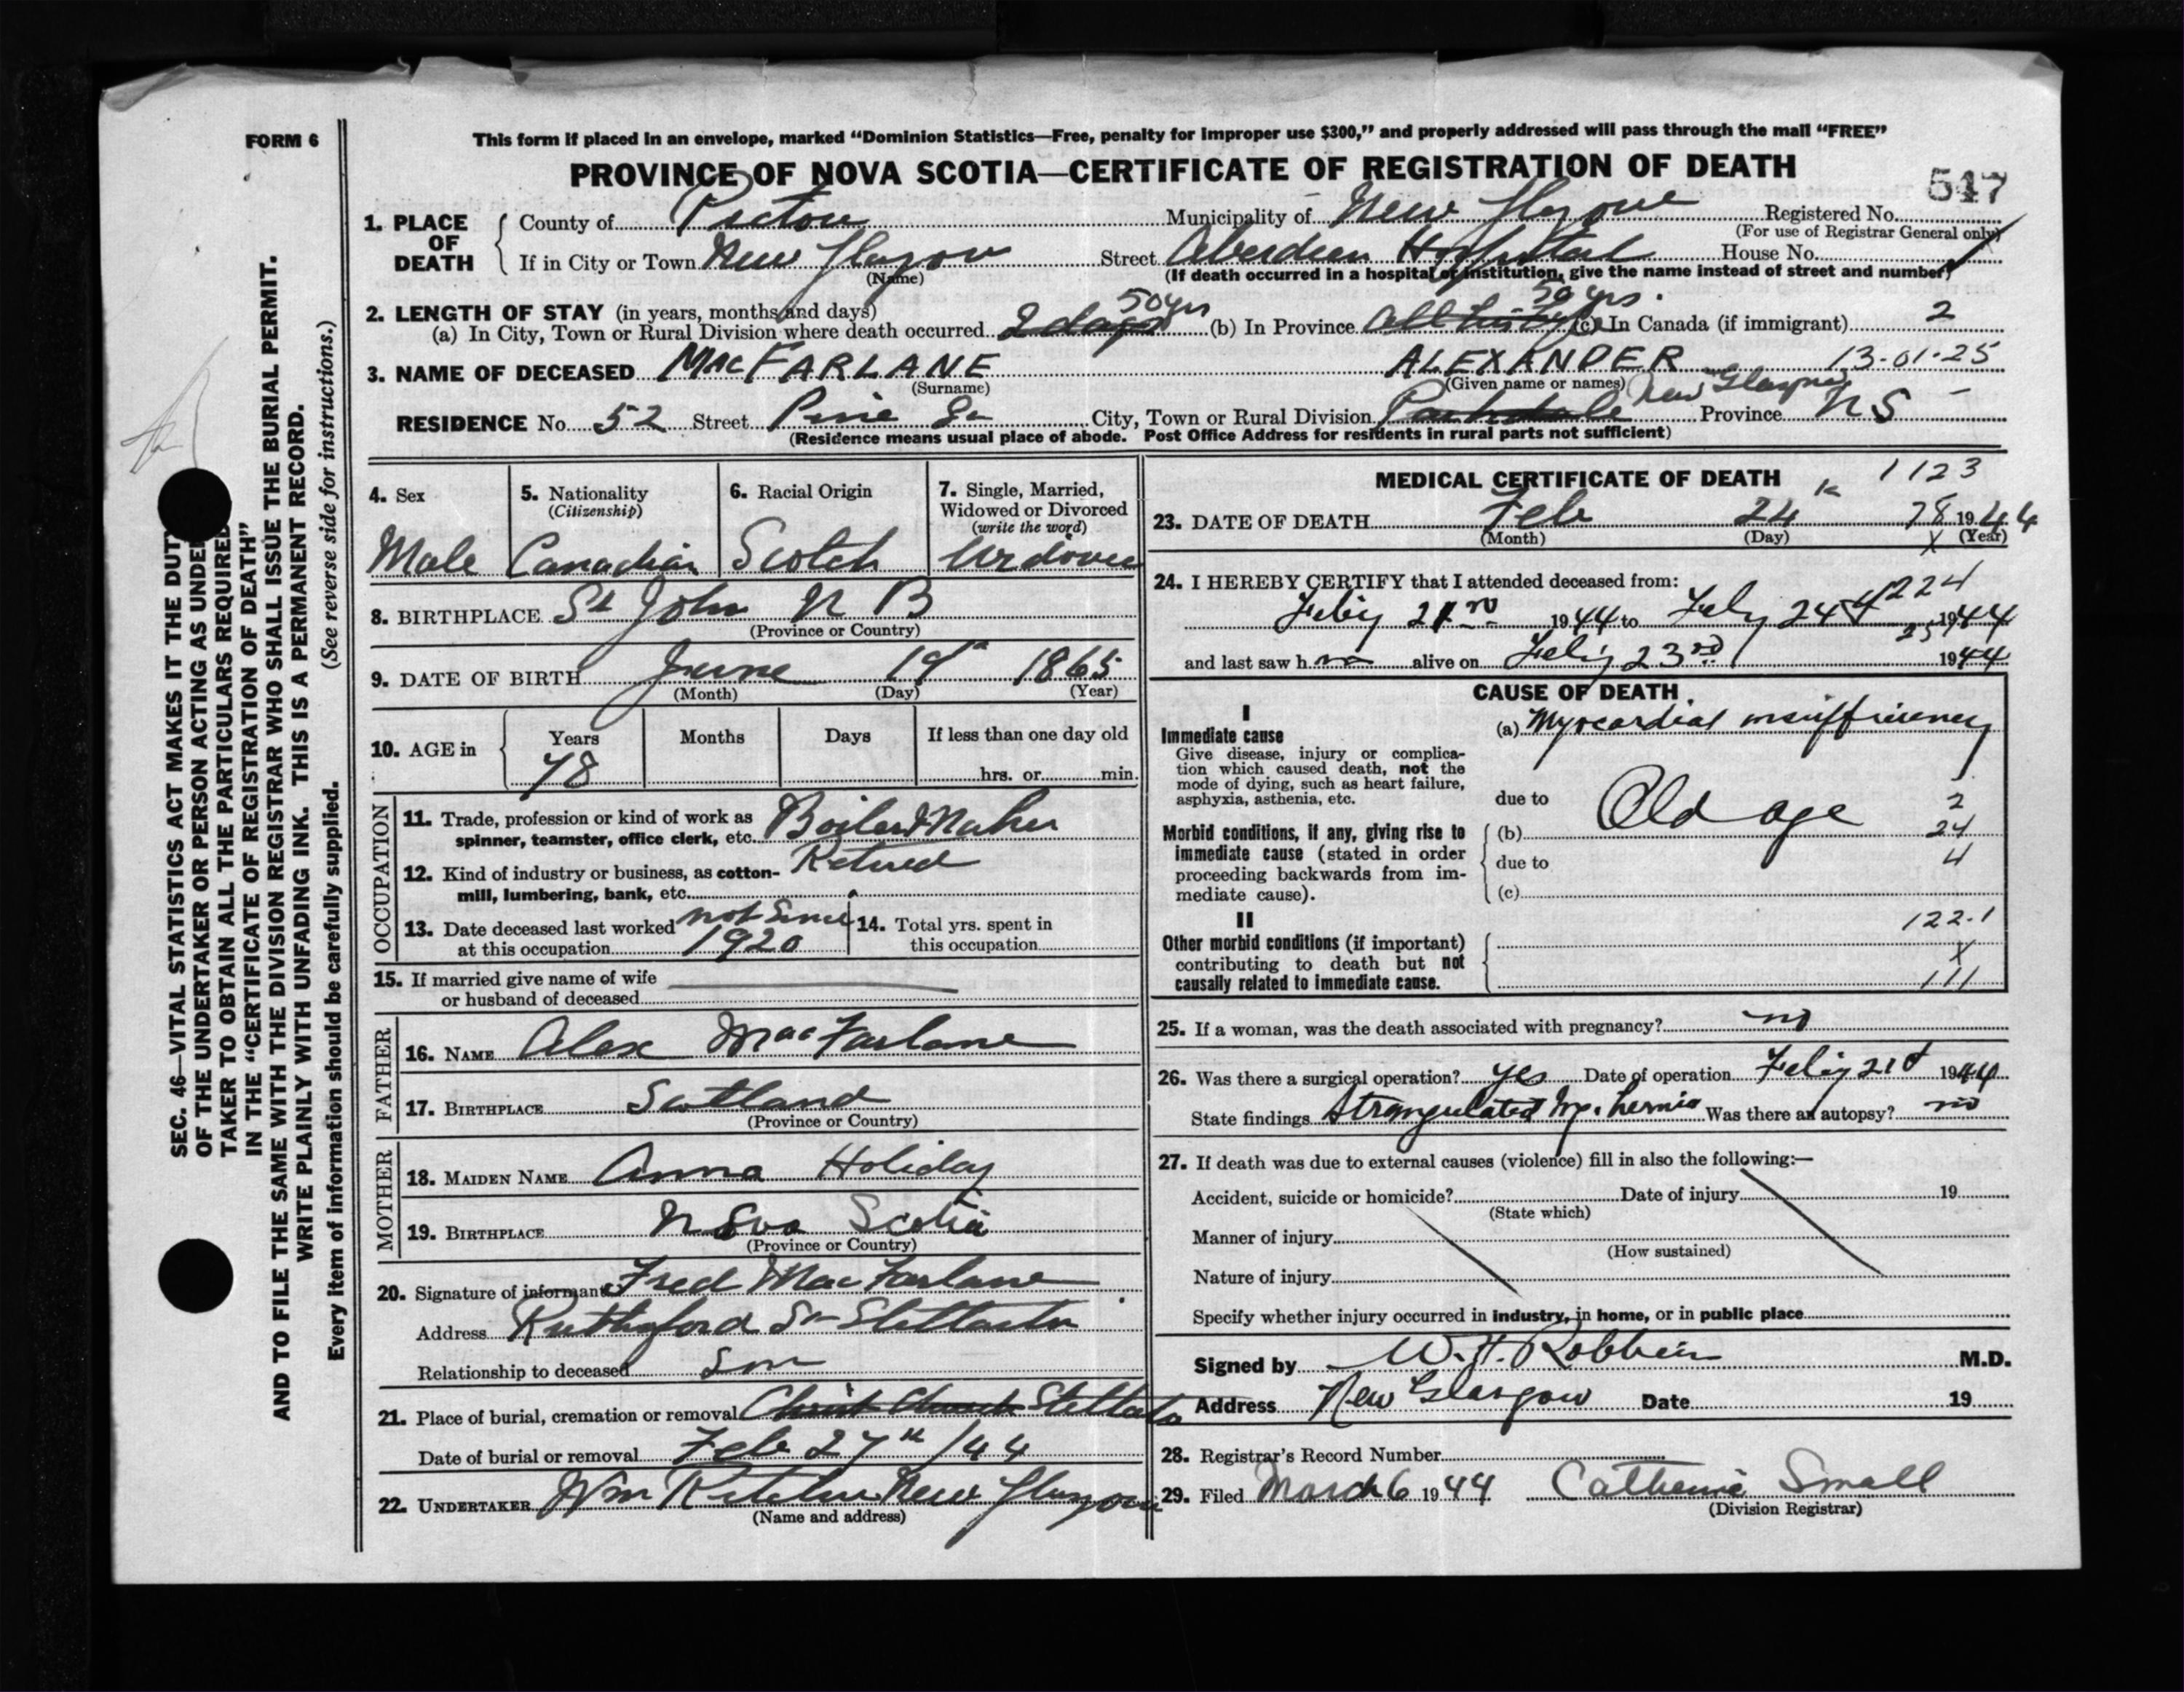 FORM 6
This form if placed in an envelope, marked “Dominion Statistics—Free, penalty for improper use $300,” and properly addressed will pass through the mail “FREE”
PROVINCE OF NOVA SCOTIA—CERTIFICATE OF REGISTRATION OF DEATH
547
1. PLACE OF DEATH
County of Pictou Municipality of New Glasgow Registered No.
(For use of Registrar General only)
If in City or Town New Glasgow Street Aberdeen Hospital House No.
(Name) (If death occurred in a hospital or institution, give the name instead of street and number)
2. LENGTH OF STAY (in years, months and days) 50 yrs 50 yrs.
(a) In City, Town or Rural Division where death occurred 2 days (b) In Province (c) In Canada (if immigrant) 2
3. NAME OF DECEASED MacFARLANE ALEXANDER 13-01-25
(Surname) (Given name or names) New Glasgow
RESIDENCE No. 52 Street Pine St City, Town or Rural Division Province NS
(Residence means usual place of abode. Post Office Address for residents in rural parts not sufficient)
4. Sex
Male
5. Nationality
(Citizenship)
Canadian
6. Racial Origin
Scotch
7. Single, Married,
Widowed or Divorced
(write the word)
8. BIRTHPLACE St John N B
(Province or Country)
9. DATE OF BIRTH June 19th 1865
(Month) (Day) (Year)
10. AGE in Years Months Days If less than one day old
78 hrs. or min.
OCCUPATION
11. Trade, profession or kind of work as
spinner, teamster, office clerk, etc. Boiler Maker
12. Kind of industry or business, as cotton-
mill, lumbering, bank, etc. Retired
13. Date deceased last worked not since
at this occupation 1920
14. Total yrs. spent in
this occupation
15. If married give name of wife
or husband of deceased
FATHER
16. NAME Alex MacFarlane
17. BIRTHPLACE Scotland
(Province or Country)
MOTHER
18. MAIDEN NAME Anna Holiday
19. BIRTHPLACE Nova Scotia
(Province or Country)
20. Signature of informant Fred MacFarlane
Address Rutherford St Stellarton
Relationship to deceased Son
21. Place of burial, cremation or removal Christ Church Stellarton
Date of burial or removal Feb 27th /44
22. UNDERTAKER Wm New Glasgow
(Name and address)
MEDICAL CERTIFICATE OF DEATH 1123
23. DATE OF DEATH Feb 24 78 1944
(Month) (Day) X (Year)
24. I HEREBY CERTIFY that I attended deceased from:
224
1944 to 1944
and last saw h alive on 23rd 1944
CAUSE OF DEATH
I
Immediate cause
Give disease, injury or complica-
tion which caused death, not the
mode of dying, such as heart failure,
asphyxia, asthenia, etc.
(a) Myocardial insufficiency
due to Old age 2
Morbid conditions, if any, giving rise to
immediate cause (stated in order
proceeding backwards from im-
mediate cause).
(b) 24
due to 4
(c)
122.1
II
Other morbid conditions (if important)
contributing to death but not
causally related to immediate cause.
X
111
25. If a woman, was the death associated with pregnancy? no
26. Was there a surgical operation? yes Date of operation 1944
State findings Strangulated hernia Was there an autopsy? no
27. If death was due to external causes (violence) fill in also the following:—
Accident, suicide or homicide? Date of injury 19
(State which)
Manner of injury
(How sustained)
Nature of injury
Specify whether injury occurred in industry, in home, or in public place
Signed by W. H. Robbins M.D.
Address New Glasgow Date 19
28. Registrar's Record Number
29. Filed March 6 1944 Catherine Small
(Division Registrar)
SEC. 46—VITAL STATISTICS ACT MAKES IT THE DUTY
OF THE UNDERTAKER OR PERSON ACTING AS UNDER
TAKER TO OBTAIN ALL THE PARTICULARS REQUIRED
IN THE “CERTIFICATE OF REGISTRATION OF DEATH”
AND TO FILE THE SAME WITH THE DIVISION REGISTRAR WHO SHALL ISSUE THE BURIAL PERMIT.
WRITE PLAINLY WITH UNFADING INK. THIS IS A PERMANENT RECORD.
Every item of information should be carefully supplied. (See reverse side for instructions.)